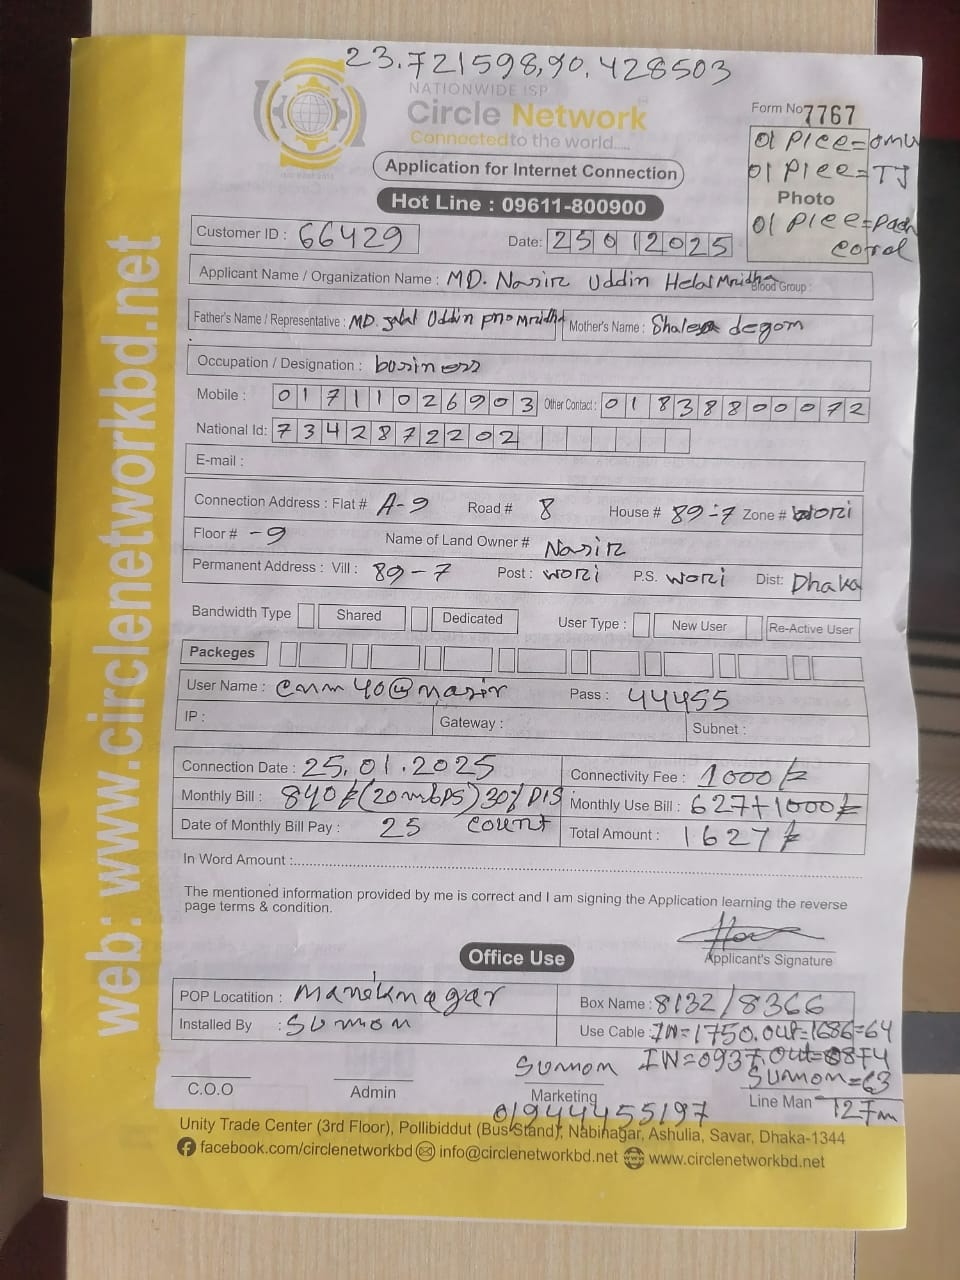 23.721598,90.428503
NATIONWIDE ISP
Circle Network
Connected to the world.....
Form No 7767
Application for Internet Connection
Hot Line : 09611-800900
01 PIce=omu
01 PIce=TJ
Photo
01 PIce=pach
corol
Customer ID : 66429
Date: 25012025
Applicant Name / Organization Name : MD. Nasir Uddin Helal Mridha Blood Group :
Father's Name / Representative : MD. Jalal Uddin Mridha Mother's Name : degom
Occupation / Designation : business
Mobile : 01711026903 Other Contact : 01838800072
National Id: 7342872202
E-mail :
Connection Address : Flat # A-9 Road # 8 House # 89-7 Zone # wori
Floor # -9 Name of Land Owner # Nasir
Permanent Address : Vill : 89-7 Post : wori P.S. wori Dist: Dhaka
Bandwidth Type Shared Dedicated User Type : New User Re-Active User
Packeges
User Name : cnm40@nasir Pass : 44455
IP : Gateway : Subnet :
Connection Date : 25.01.2025 Connectivity Fee : 1000/=
Monthly Bill : 840/=(20mbps)30% DIS Monthly Use Bill : 627+1000/=
Date of Monthly Bill Pay : 25 count Total Amount : 1627/=
In Word Amount :
The mentioned information provided by me is correct and I am signing the Application learning the reverse
page terms & condition.
Applicant's Signature
Office Use
POP Locatition : Maneknagar Box Name : 8132/8366
Installed By : Sumon Use Cable : IN=1750.out=1686=64
IN=0937.out=0874
Sumon Sumon=63
C.O.O Admin Marketing Line Man 127m
01944455197
Unity Trade Center (3rd Floor), Pollibiddut (Bus Stand), Nabinagar, Ashulia, Savar, Dhaka-1344
facebook.com/circlenetworkbd info@circlenetworkbd.net www.circlenetworkbd.net
web: www.circlenetworkbd.net